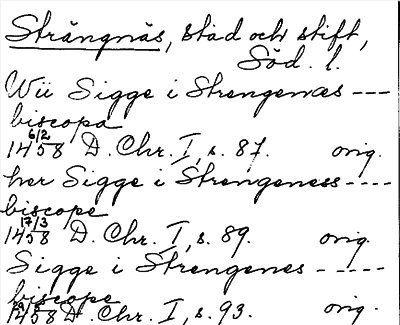 Strängnäs, stad och stift,
Söd. l.
Wii Sigge i Strengenæs ---
biscopa
6/2
1458 D. Chr. I, s. 87. orig.
her Sigge i Strengeness ----
biscope
17/3
1458 D. Chr. I, s. 89. orig.
Sigge i Strengenes -----
biscope
1458 D. Chr. I, s. 93. orig.